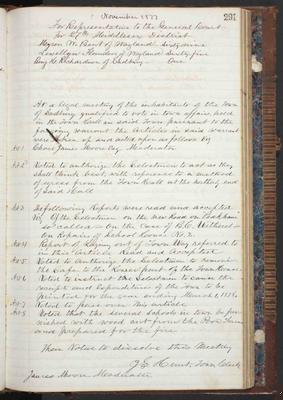 November 1877
291
For Representative to the General Court
for 28th Middlesex District
Myron W. Bent of Wayland Sixty nine
Lowellyn Flanders of Wayland Sixty five
Benj H. Richardson of Sudbury One
At a legal meeting of the inhabitants of the Town
of Sudbury qualified to vote in town affairs, held
in the Town Hall in said Town pursuant to the
foregoing warrant the Articles in said warrant
were acted upon as follows by
Art 1 Chose James Moore Esq. Moderator
Art 2 Voted to authorize the Selectmen to act as they
shall think best with reference to a method
of egress from the Town Hall at the end
of said Hall
Art 3 The following Reports were read and accepted
of the Selectmen on the new Road on Peakham
so called — On the Case of
on Repairs of School House No. 2.
Art 4 Report of Laying out of Town Way referred to
in this Article Read and Accepted
Art 5 Voted to Authorize the Selectmen to remove
the to the of the Town House
Art 6 Voted to instruct the Selectmen to cause the
receipts and Expenditures of the Town to be
printed for the year ending March 1, 1878
Art 7 Voted to pass over this article
Art 8 Voted that the several schools in town be fur
nished with wood cut from the Poor Farm
and prepared for the fire
Then Voted to dissolve this Meeting
J. S. Hunt, Town Clerk
James Moore Moderator